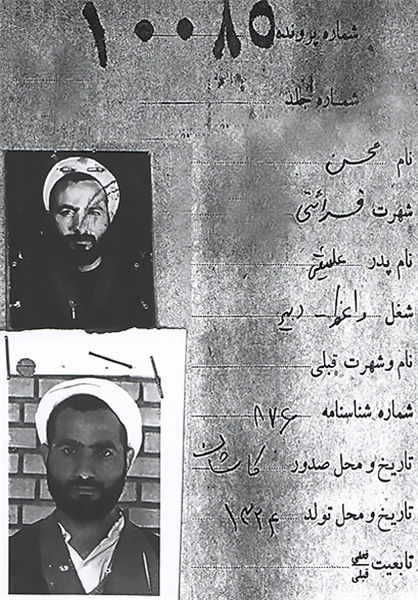 شماره پرونده ۱۰۰۸۵
شماره جلد
نام محسن
شهرت قرائتی
نام پدر علینقی
شغل واعظ - دبیر
نام و شهرت قبلی
شماره شناسنامه ۸۷۶
تاریخ و محل صدور کاشان
تاریخ و محل تولد ۱۳۲۴
تابعیت فعلی
قبلی